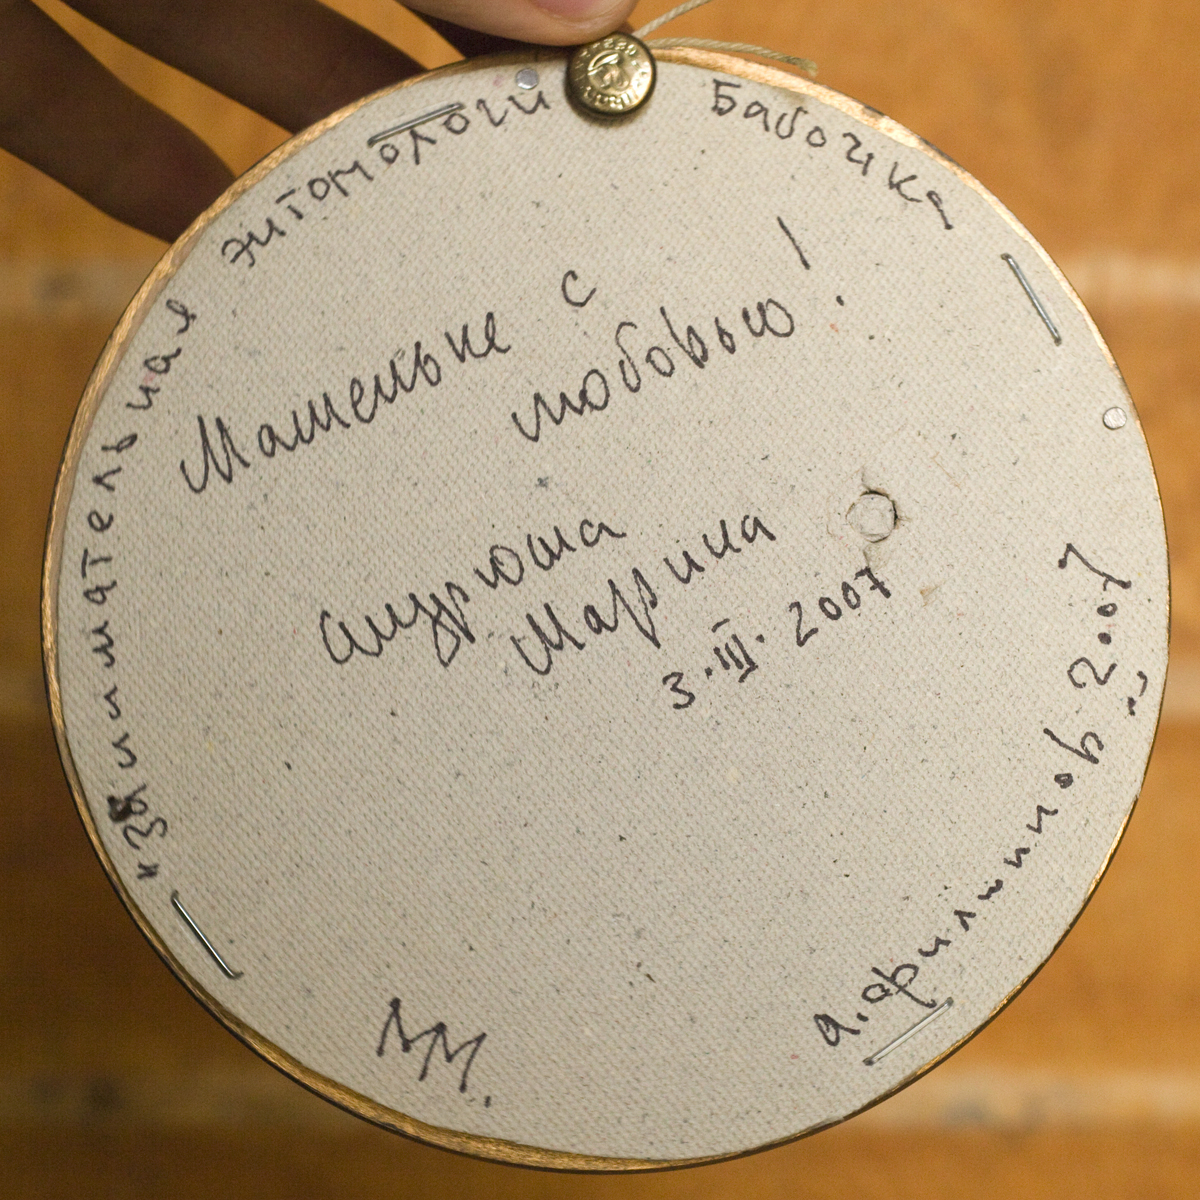 "Занимательная энтомологи
Бабочка
Машеньке с
любовью!
Андрюша
Марина
3.III.2007
А. Филиппов 2007